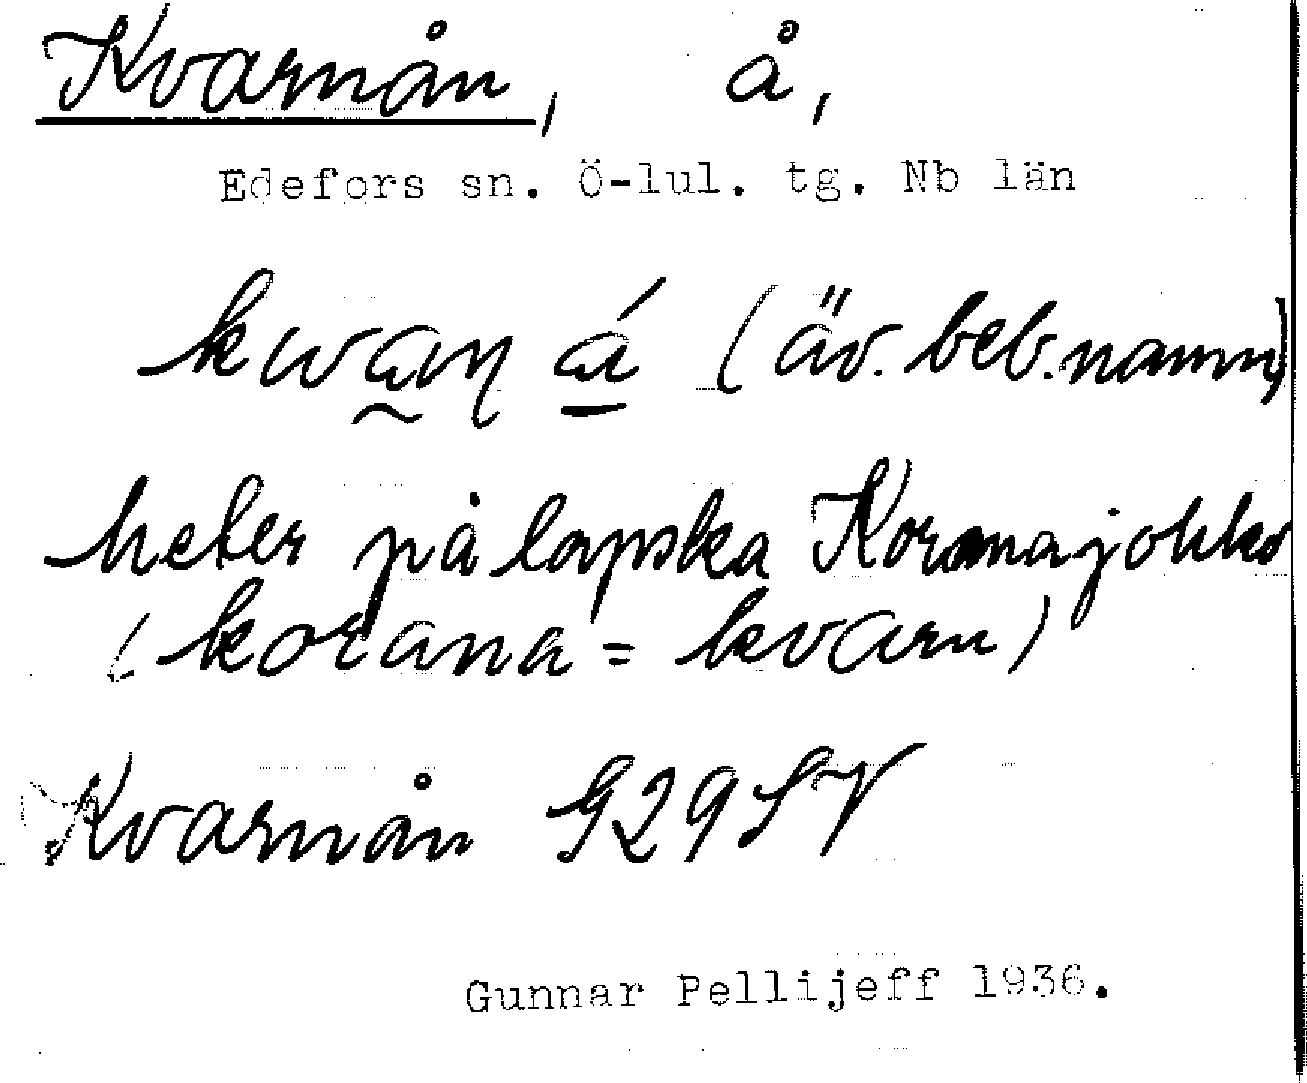 Kvarnån, å,
Edefors sn. Ö-lul. tg. Nb län
(äv. beb.namn)
heter på lapska
(korana = kvarn)
Kvarnån G29SV
Gunnar Pellijeff 1936.